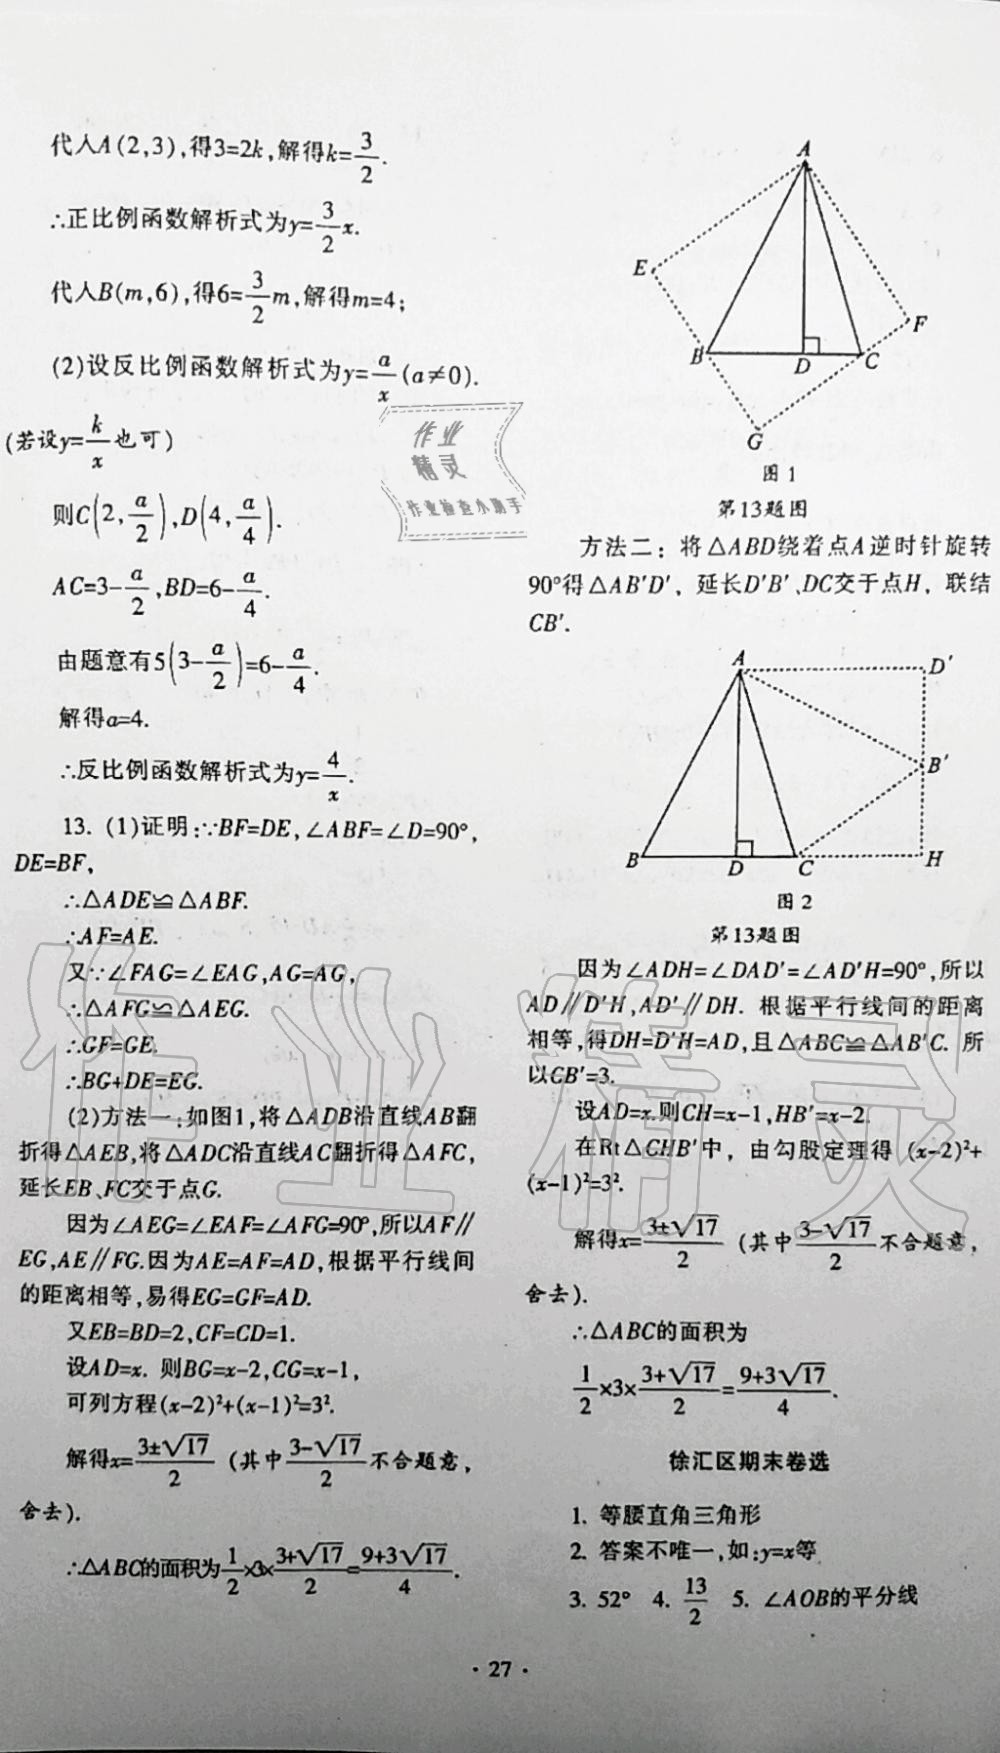 代入A(2,3),得3=2k,解得k=3/2.
∴正比例函数解析式为y=3/2x.
代入B(m,6),得6=3/2m,解得m=4;
(2)设反比例函数解析式为y=a/x(a≠0).
(若设y=k/x也可)
则C(2,a/2),D(4,a/4).
AC=3-a/2,BD=6-a/4.
由题意有5(3-a/2)=6-a/4.
解得a=4.
∴反比例函数解析式为y=4/x.
13. (1)证明:∵BF=DE,∠ABF=∠D=90°,
DE=BF,
∴△ADE≌△ABF.
∴AF=AE.
又∵∠FAG=∠EAG,AG=AG,
∴△AFG≌△AEG.
∴GF=GE.
∴BG+DE=EG.
(2)方法一:如图1,将△ADB沿直线AB翻
折得△AEB,将△ADC沿直线AC翻折得△AFC,
延长EB、FC交于点G.
因为∠AEG=∠EAF=∠AFG=90°,所以AF∥
EG,AE∥FG.因为AE=AF=AD,根据平行线间
的距离相等,易得EG=GF=AD.
又EB=BD=2,CF=CD=1.
设AD=x. 则BG=x-2,CG=x-1,
可列方程(x-2)²+(x-1)²=3².
解得x=3±√17/2 (其中3-√17/2不合题意,
舍去).
∴△ABC的面积为1/2×3×3+√17/2=9+3√17/4.
A
E
F
B
D
C
G
图1
第13题图
方法二：将△ABD绕着点A逆时针旋转
90°得△AB′D′，延长D′B′、DC交于点H，联结
CB′.
A
D′
B′
B
D
C
H
图2
第13题图
因为∠ADH=∠DAD′=∠AD′H=90°,所以
AD∥D′H,AD′∥DH. 根据平行线间的距离
相等,得DH=D′H=AD,且△ABC≌△AB′C. 所
以CB′=3.
设AD=x.则CH=x-1,HB′=x-2.
在Rt△CHB′中，由勾股定理得 (x-2)²+
(x-1)²=3².
解得x=3±√17/2 (其中3-√17/2不合题意,
舍去).
∴△ABC的面积为
1/2×3×3+√17/2=9+3√17/4.
徐汇区期末卷选
1. 等腰直角三角形
2. 答案不唯一,如:y=x等
3. 52° 4. 13/2 5. ∠AOB的平分线
· 27 ·
作业
精灵
作业检查小助手
作业精灵